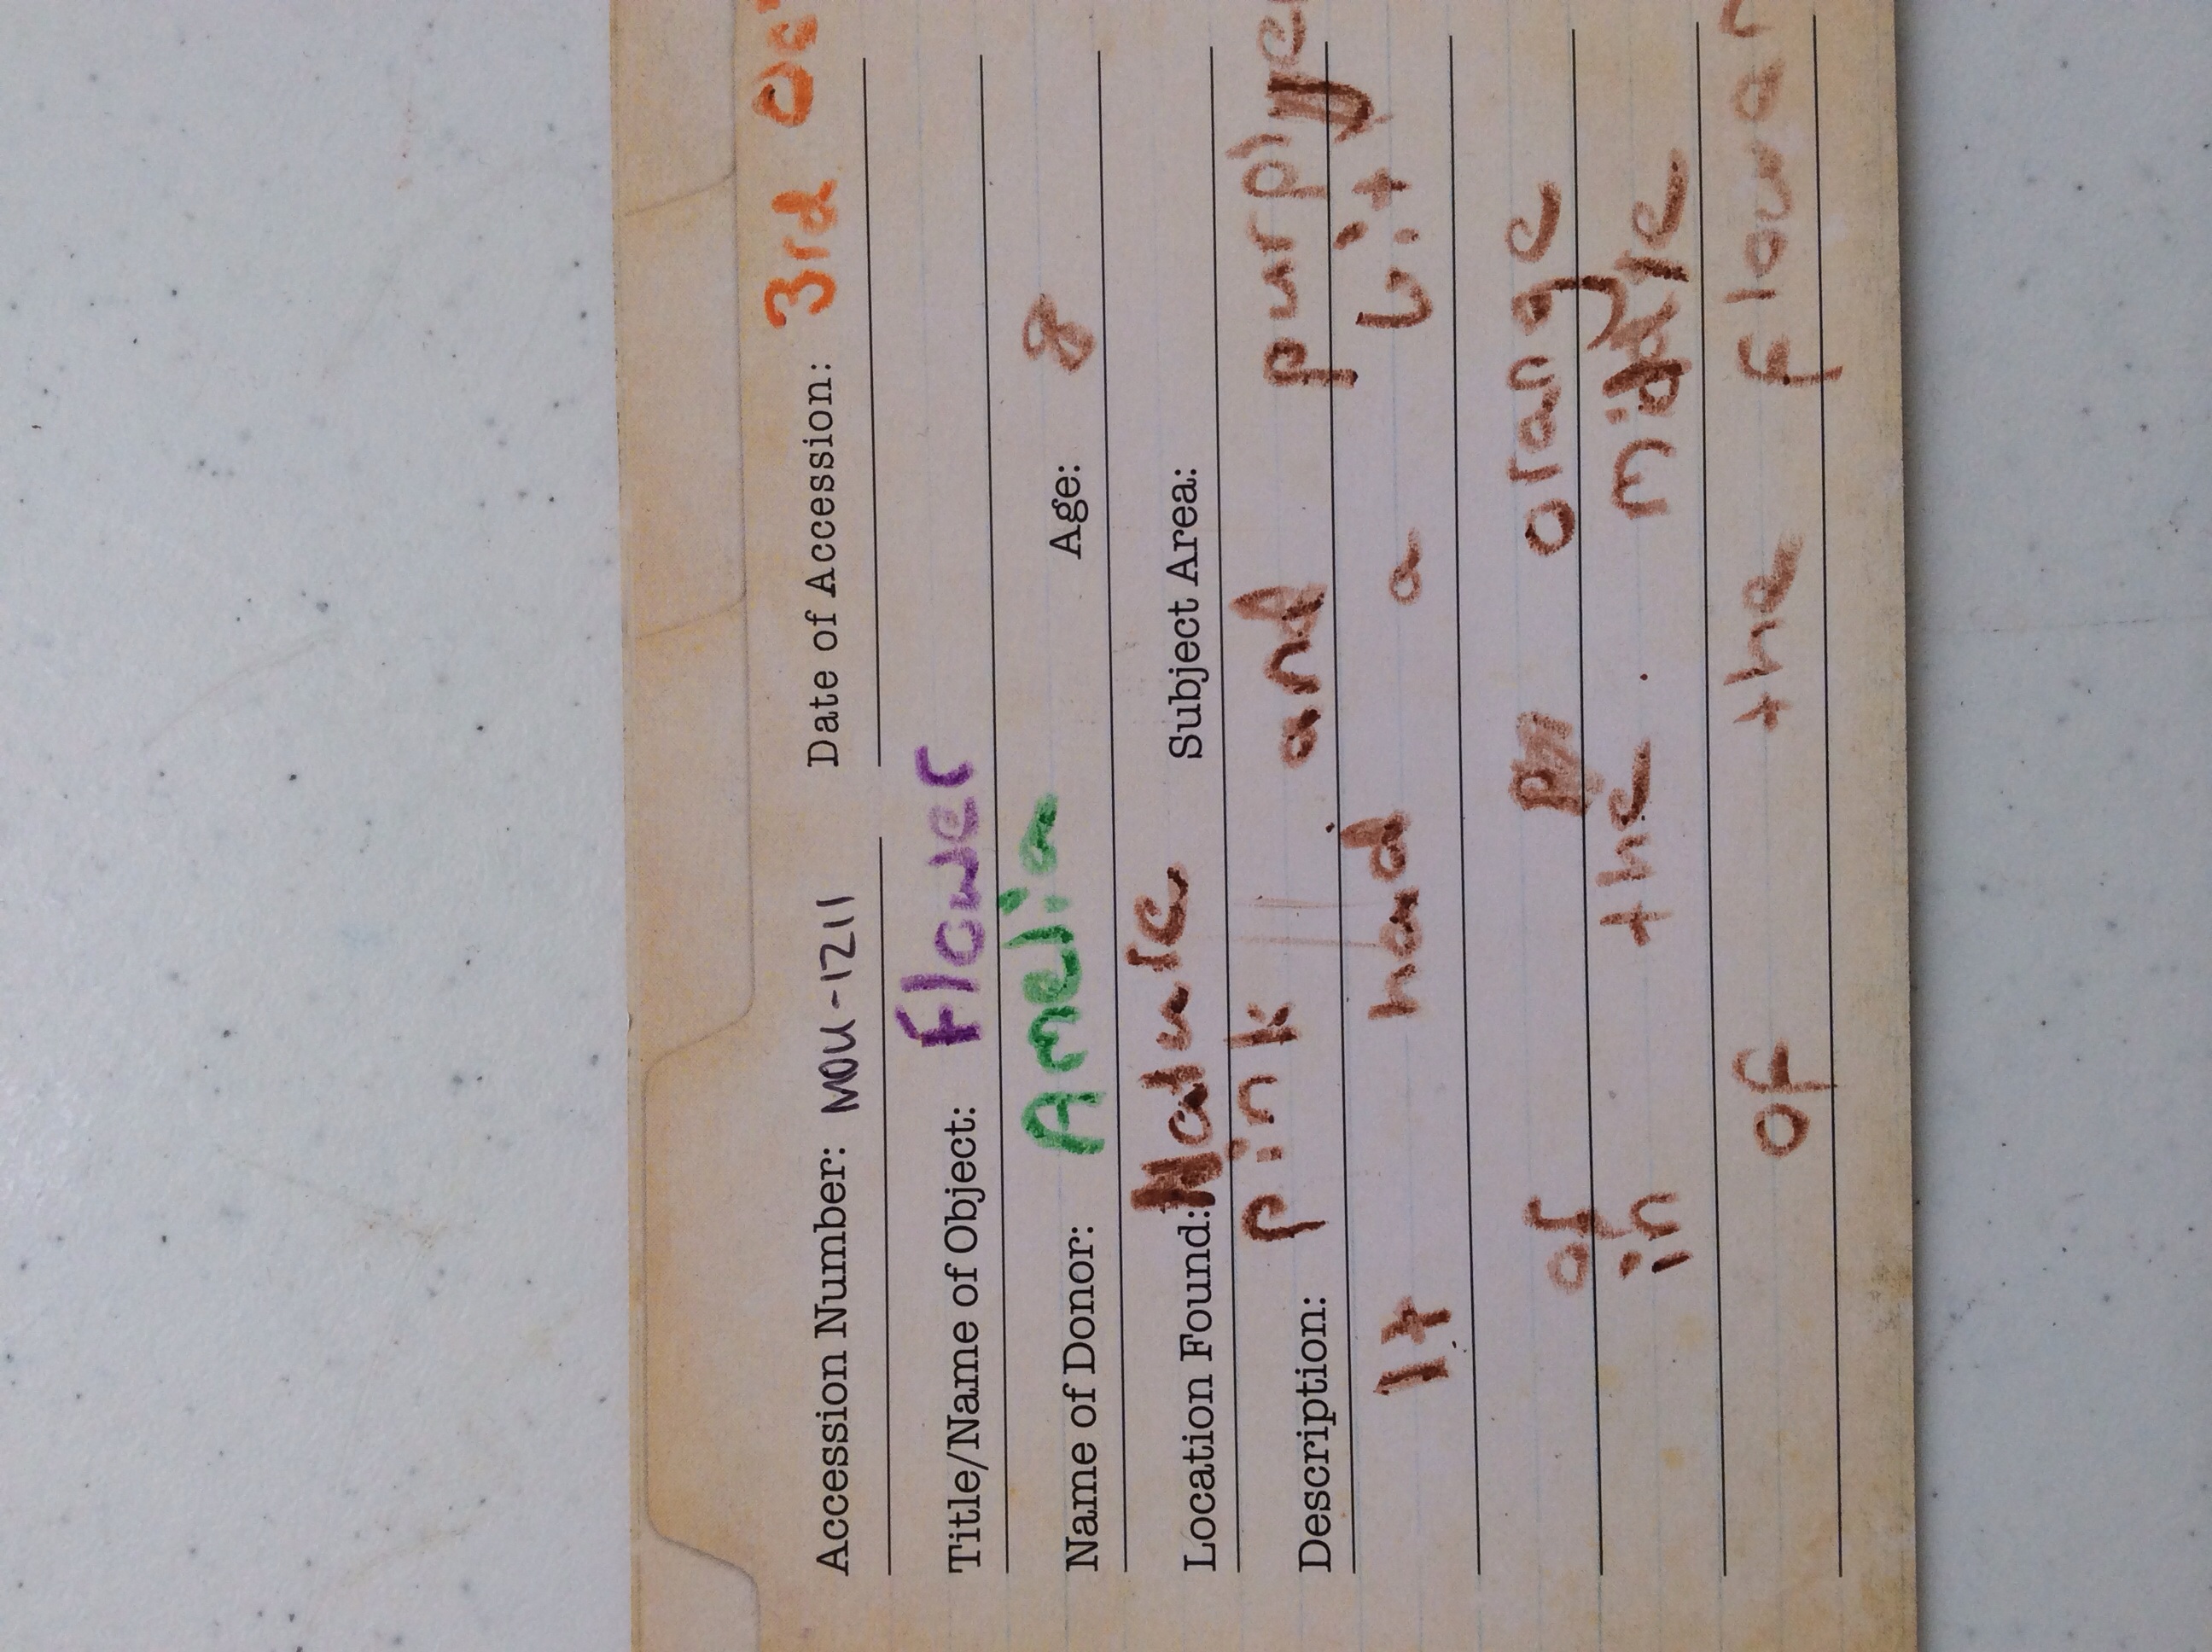 Accession Number: MOU-1211 Date of Accession: 3rd Oc
Title/Name of Object: Flower
Name of Donor: Amelia Age: 8
Location Found: Nature Subject Area:
Description: pink and purplye
It had a bit
of orange
in the middle
of the flowar